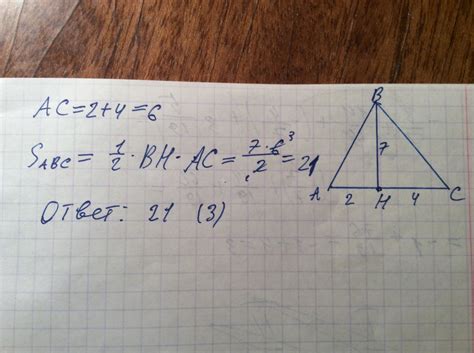 AC=2+4=6
S_ABC = 1/2 · BH · AC = 7·6³/2 = 21
Ответ: 21 (3)
B
7
A 2 H 4 C